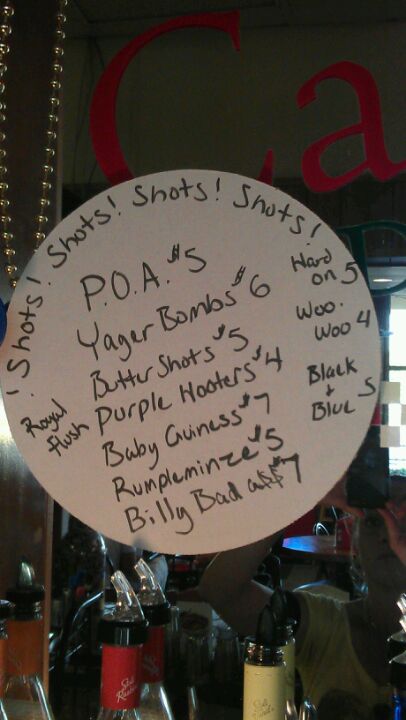 Ca
Shots! Shots! Shots! Shots!
P.O.A. $5
Yager Bombs $6
Butter Shots $5
Purple Hooters $4
Baby Guiness $7
Rumpleminze $5
Billy Bad a$$ $7
Royal
flush
Hard
on 5
Woo.
Woo 4
Black
+
Blue 5
P